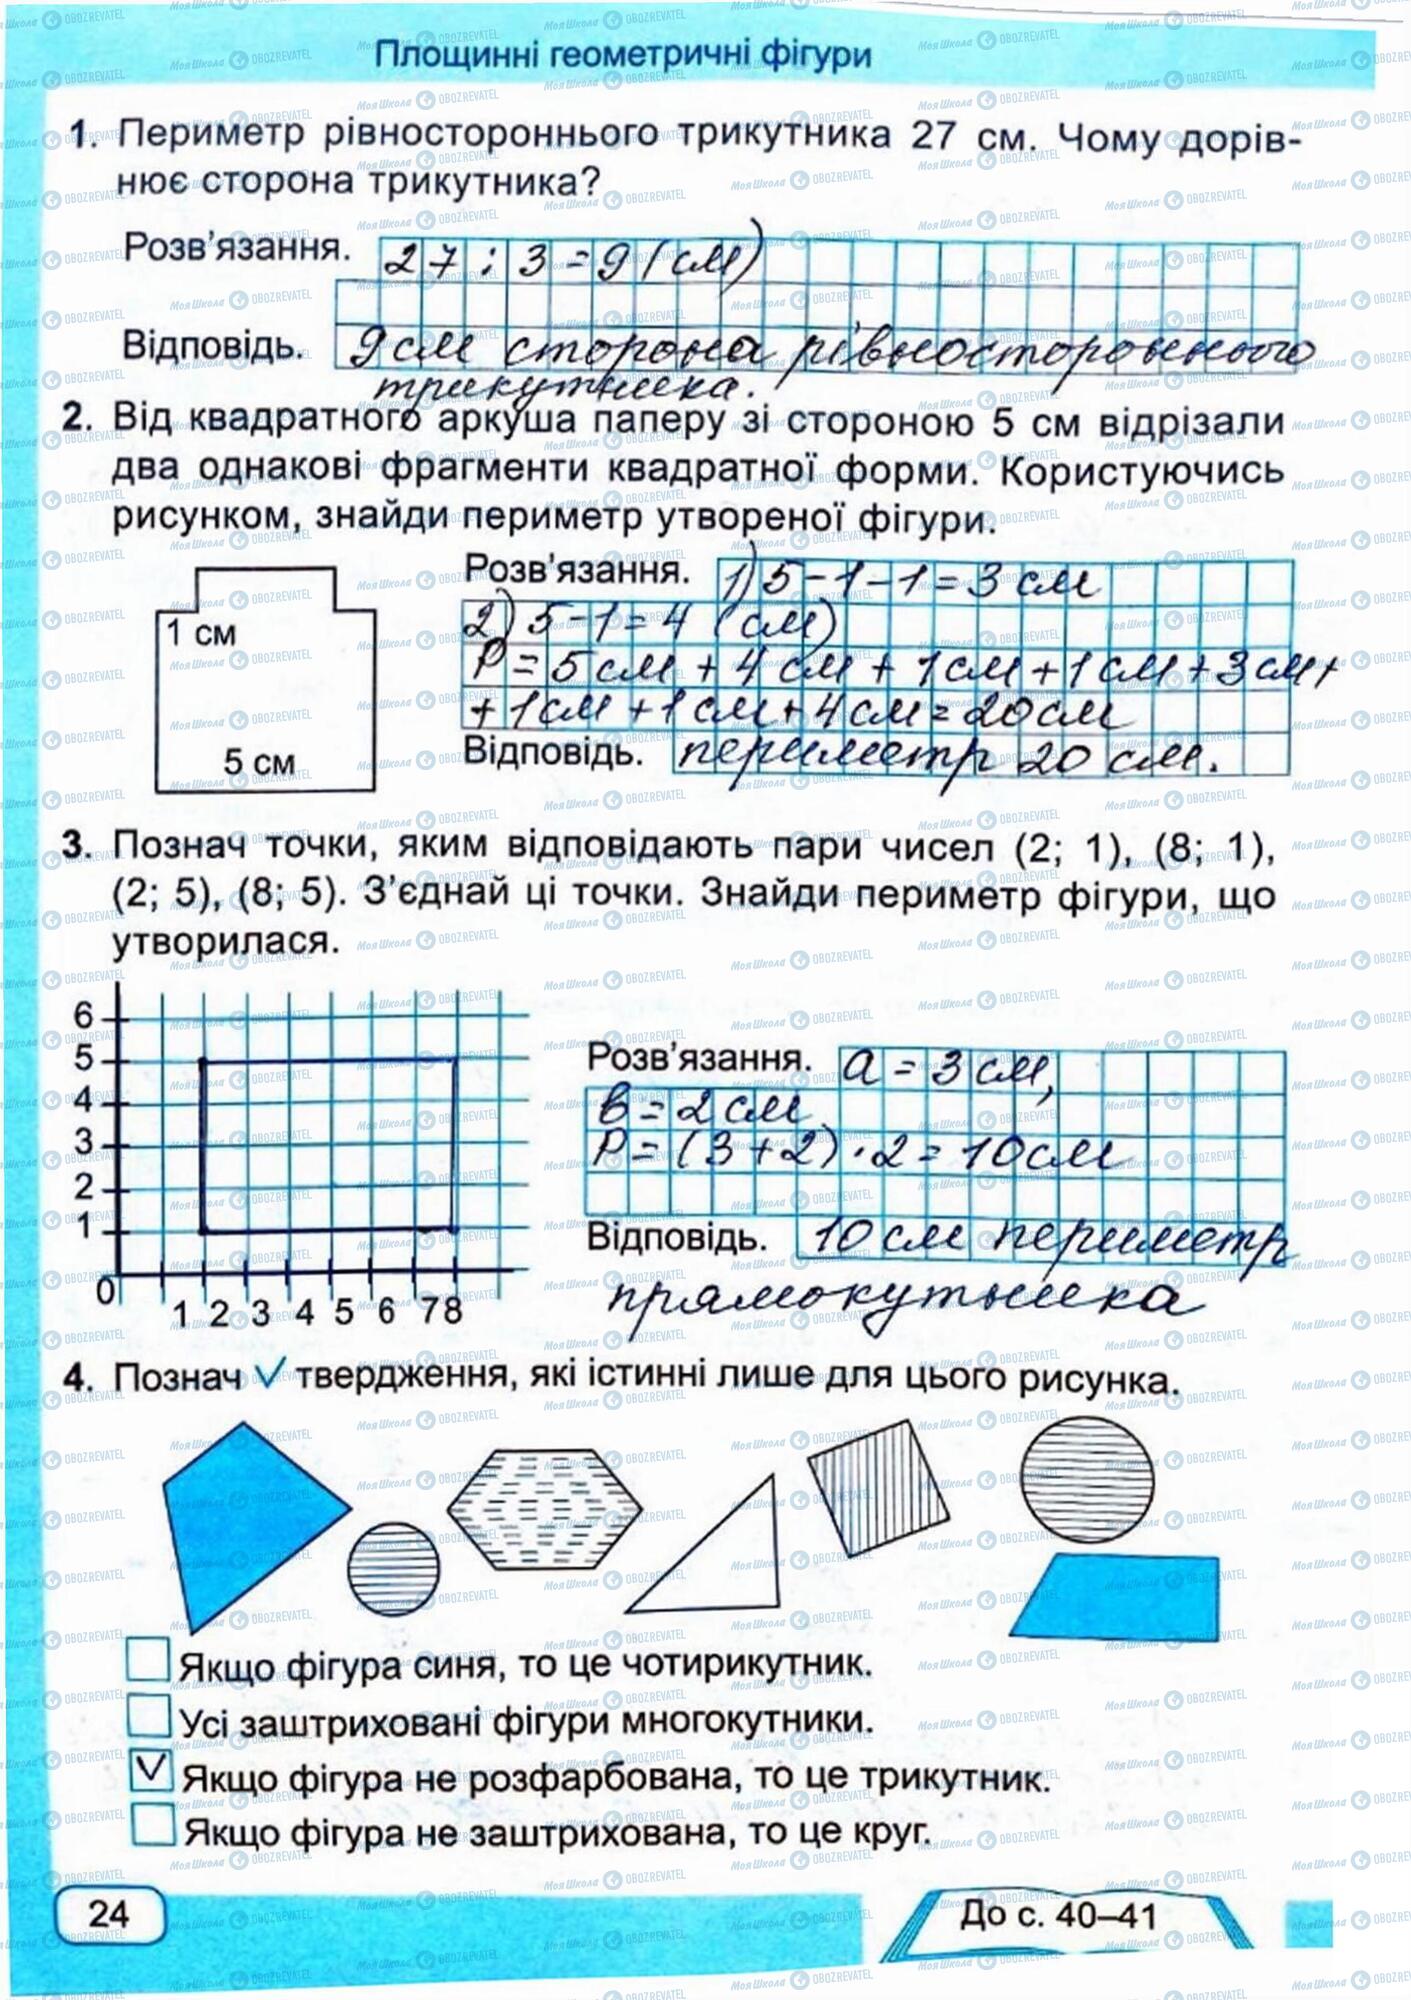 Площинні геометричні фігури
1. Периметр рівностороннього трикутника 27 см. Чому дорів-
нює сторона трикутника?
Розв'язання. 27 : 3 = 9 (см)
Відповідь. 9 см сторона рівностороннього
трикутника.
2. Від квадратного аркуша паперу зі стороною 5 см відрізали
два однакові фрагменти квадратної форми. Користуючись
рисунком, знайди периметр утвореної фігури.
1 см
5 см
Розв'язання. 1) 5 - 1 - 1 = 3 см
2) 5 - 1 = 4 (см)
P = 5 см + 4 см + 1 см + 1 см + 3 см +
+ 1 см + 1 см + 4 см = 20 см
Відповідь. периметр 20 см.
3. Познач точки, яким відповідають пари чисел (2; 1), (8; 1),
(2; 5), (8; 5). З'єднай ці точки. Знайди периметр фігури, що
утворилася.
6
5
4
3
2
1
0
1 2 3 4 5 6 7 8
Розв'язання. a = 3 см,
в = 2 см
P = (3 + 2) · 2 = 10 см
Відповідь. 10 см периметр
прямокутника
4. Познач V твердження, які істинні лише для цього рисунка.
Якщо фігура синя, то це чотирикутник.
Усі заштриховані фігури многокутники.
V Якщо фігура не розфарбована, то це трикутник.
Якщо фігура не заштрихована, то це круг.
24
До с. 40–41
МояШкола OBOZREVATEL